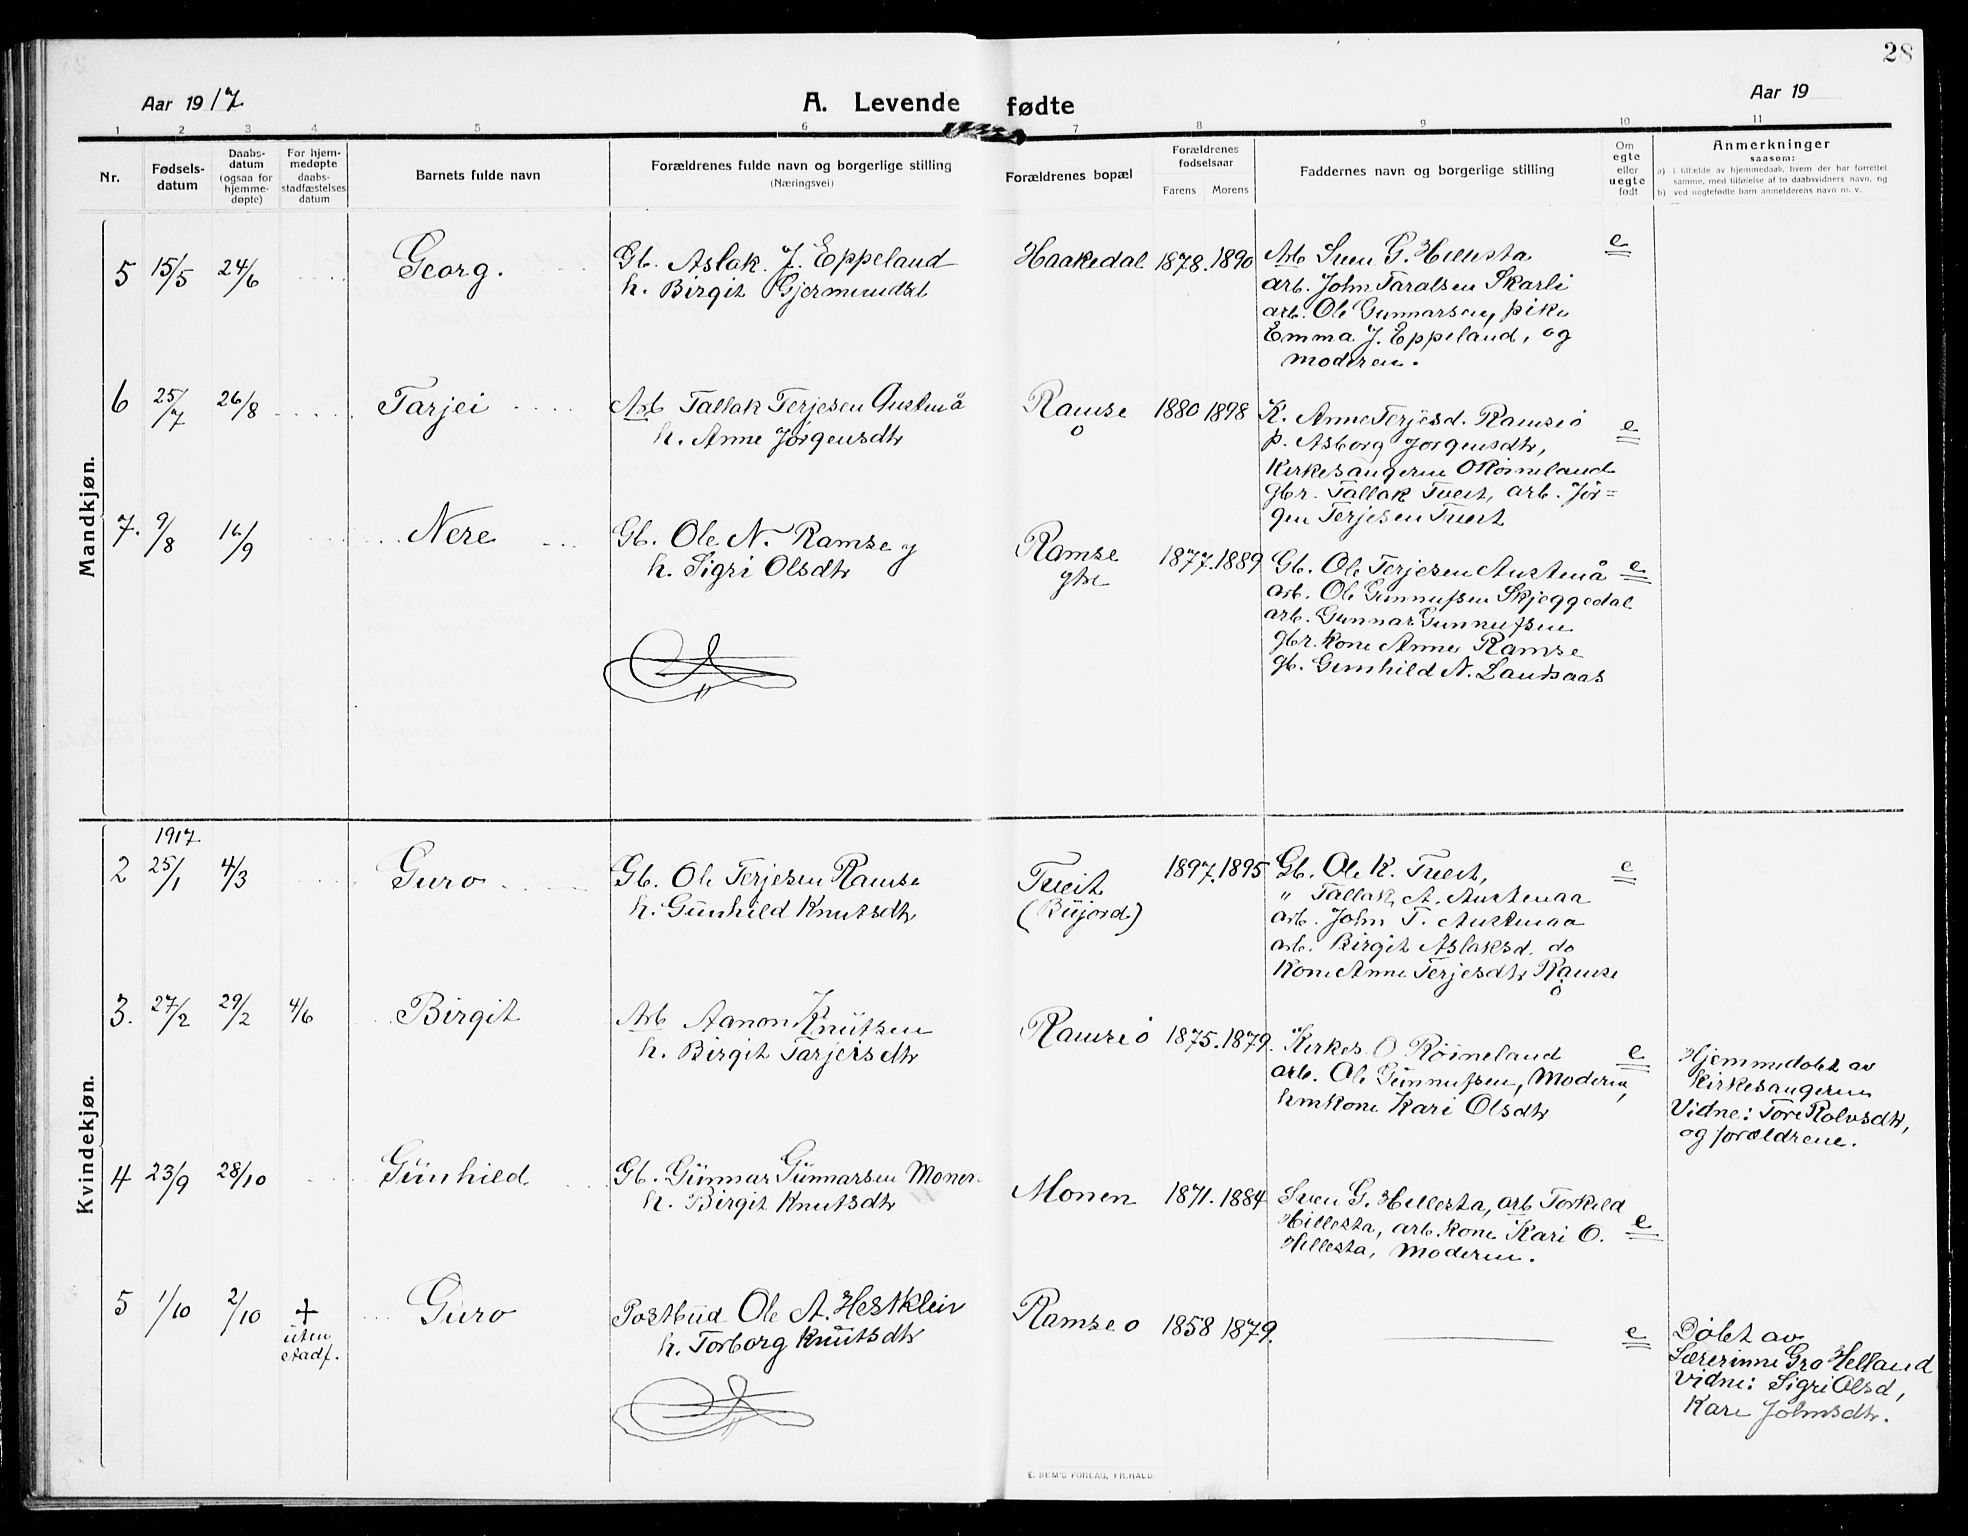 28
Aar 1917
A. Levende fødte
Aar 19
1 2 3 4 5 6 7 8 9 10 11
Nr.
Fødsels-
datum
Daabs-
datum
(ogsaa for
hjemme-
døpte)
For hjem-
medøpte
daabs-
stadfæstelses
datum
Barnets fulde navn
Forældrenes fulde navn og borgerlige stilling
(Næringsvei)
Forældrenes bopæl
Forældrenes
fødselsaar
Farens Morens
Faddernes navn og borgerlige stilling
Om
egte
eller
uegte
født
Anmerkninger
saasom:
a) i tilfælde av hjemmedaab, hvem der har forrettet
samme, med tilføielse af to daabsvidners navn, og
b) ved uegtefødte barn anmelderens navn m. v.
Mandkjøn.
5 15/5 24/6 Georg.
Gb. Aslak J. Eppeland
h. Birgit Gjermundsd
Haakedal 1878. 1890
Arb Sven G. Hillesta
arb. John Taralsen Skarli
arb. Ole Gunnarsen, pike
Emma J. Eppeland, og
moderen.
e
6 25/7 26/8 Tarjei
Arb Tallak Terjesen Austenå
h. Anne Jørgensdtr
Ramse
o
1880 1898
K. Anne Terjesd. Ramse ø
p. Asborg Jørgensdtr,
Kirkesangeren O Røineland
gbr. Tallak Tveit, arb. Jør=
gen Terjesen Tveit
e
7. 9/8 16/9 Nere
Gb. Ole N. Ramse y
h. Sigri Olsdtr
Ramse
ytre
1877. 1889
Gb. Ole Terjesen Austenå
arb. Ole Gunnufsen Skjeggedal
arb. Gunnar Gunnufsen
gbr. kone Anne Ramse
gb. Gunhild N. Landsaas
e
Kvindekjøn.
1917
2 25/1 4/3 Guro
Gb. Ole Terjesen Ramse
h. Gunhild Knutsdtr
Tveit
(Bujord.)
1897. 1895
Gb. Ole K. Tveit,
" Tallak A. Austenaa
arb. John T. Austenaa
arb. Birgit Aslaksd. do
Kone Anne Terjesdtr Ramse
ø
e
3. 27/2 29/2 4/6 Birgit
Arb Aanon K Knutsen
h. Birgit Tarjeisdtr
Ramse ø 1875. 1879.
Kirkes. O Røineland
arb. Ole Gunnufsen, Moderen,
hmkone Kari Olsdtr
e
Hjemmedøbt av
kirkesangeren
Vidne: Tore Rolvsdtr,
og forældrene.
4 23/9 28/10 Gunhild
Gb. Gunnar Gunnarsen Monen
h. Birgit Knutsdtr
Monen 1871. 1884
Sven G. Hillesta, arb Torkild
Hillesta, arb. kone Kari O.
Hillesta, Moderen.
e
5 1/10 2/10 + uten
stadf.
Guro
Postbud Ole A. Hestklein
h. Torborg Knutsdtr
Ramse o 1858 1879.
e
Døbt av
Lærerinne Gro Helland
Vidne: Sigri Olsd,
Kari Johnsdtr.
E. SEM'S FORLAG, FR.HALD.